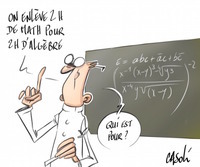 ON ENLÈVE 2 H
DE MATH POUR
2H D'ALGÈBRE
QUI EST
POUR ?
CASOLI